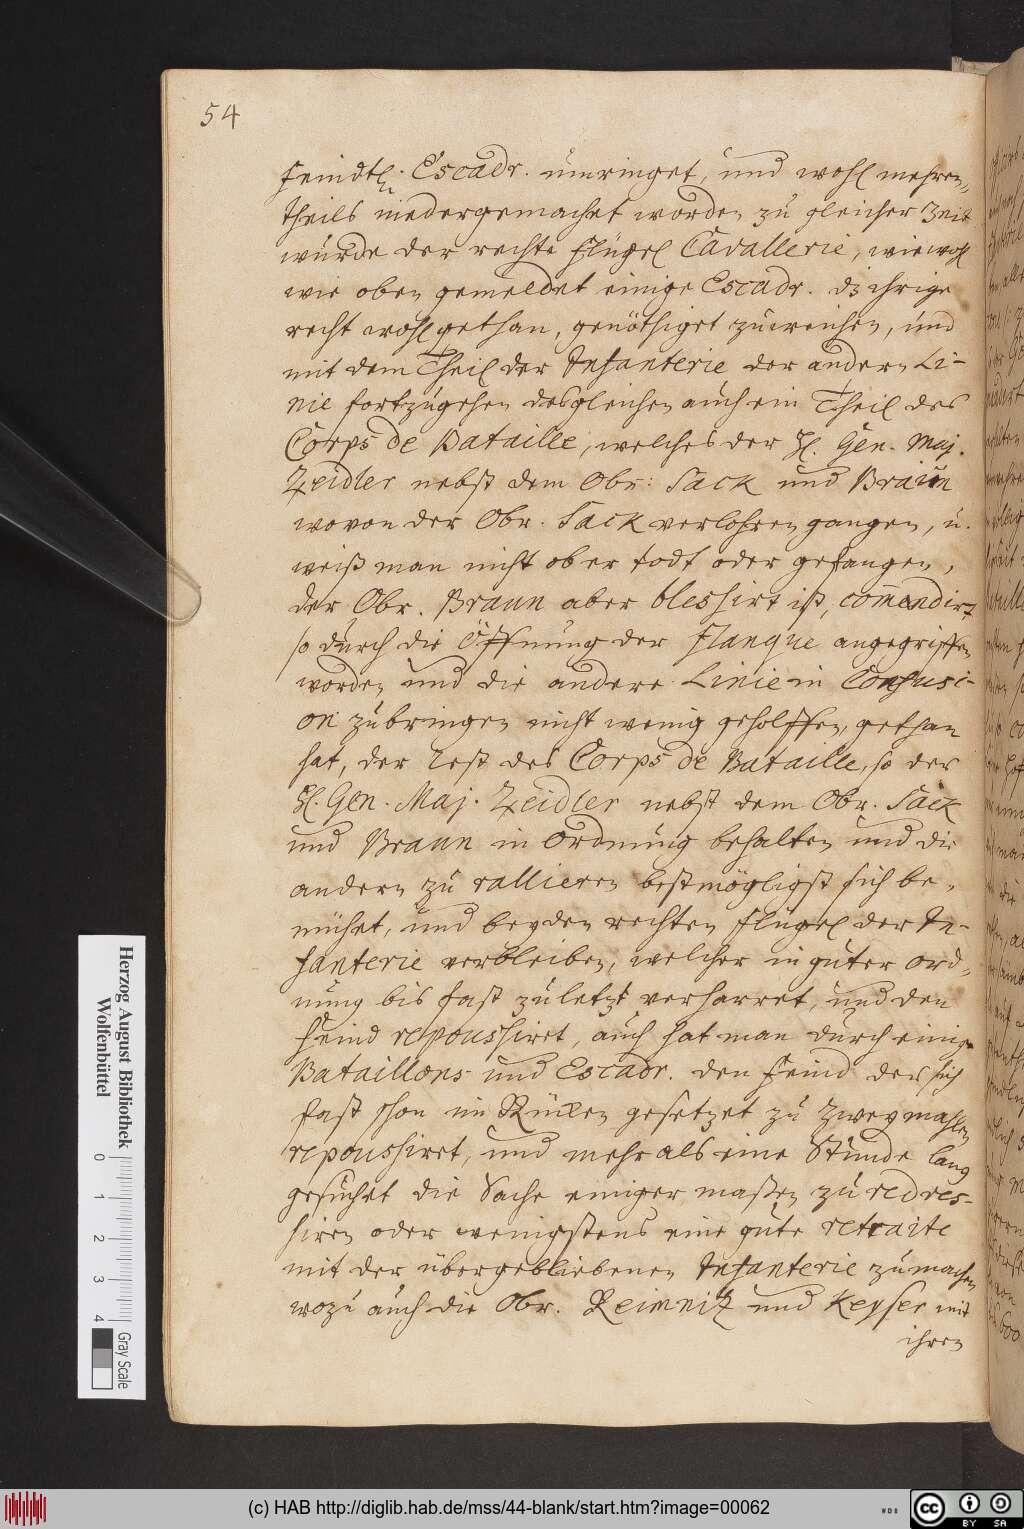 54
feindl. Escadr. umringet, und wohl mehren-
theils niedergemachet worden zu gleicher Zeit
wurde der rechte Flügel Cavallerie, wiewohl
wie oben gemeldet einige Escadr. dz ihrige
recht wohl gethan, genöthiget zuweichen, und
mit dem Theil der Infanterie der andern Li-
nie fortzugehen desgleichen auch ein Theil des
Corps de Bataille, welches der H. Gen. Maj.
Zeidler nebst dem Obr: Sack und Braun
wovon der Obr. Sack verlohren gangen, u.
weiß man nicht ob er todt oder gefangen,
der Obr. Braun aber blessirt ist, com̅endirt,
so durch die Öffnung der Flanque angegriffen
worden und die andere Linie in Confusi-
on zubringen nicht wenig geholffen, gethan
hat, der Rest des Corps de Bataille, so der
H. Gen. Maj. Zeidler nebst dem Obr. Sack
und Braun in Ordnung behalten und die
andern zu rallieren bestmögligst sich be-
mühet, und bey den rechten Flügel der In-
fanterie verbleiben, welcher in guter Ord-
nung bis fast zuletzt verharret, und den
Feind repoussiret, auch hat man durch einige
Bataillons und Escadr. den Feind der sich
fast schon im Rücken gesetzet zu zweymahlen
repoussiret, und mehr als eine Stunde lang
gesuchet die Sache einiger maßen zu redres-
siren oder wenigstens eine gute retraite
mit der übergebliebenen Infanterie zumachen
wozu auch die Obr. Reimnitz und Keyser mit
ihren
Herzog August Bibliothek
Wolfenbüttel
0 1 2 3 4
Gray Scale
(c) HAB http://diglib.hab.de/mss/44-blank/start.htm?image=00062
WDB
cc BY SA